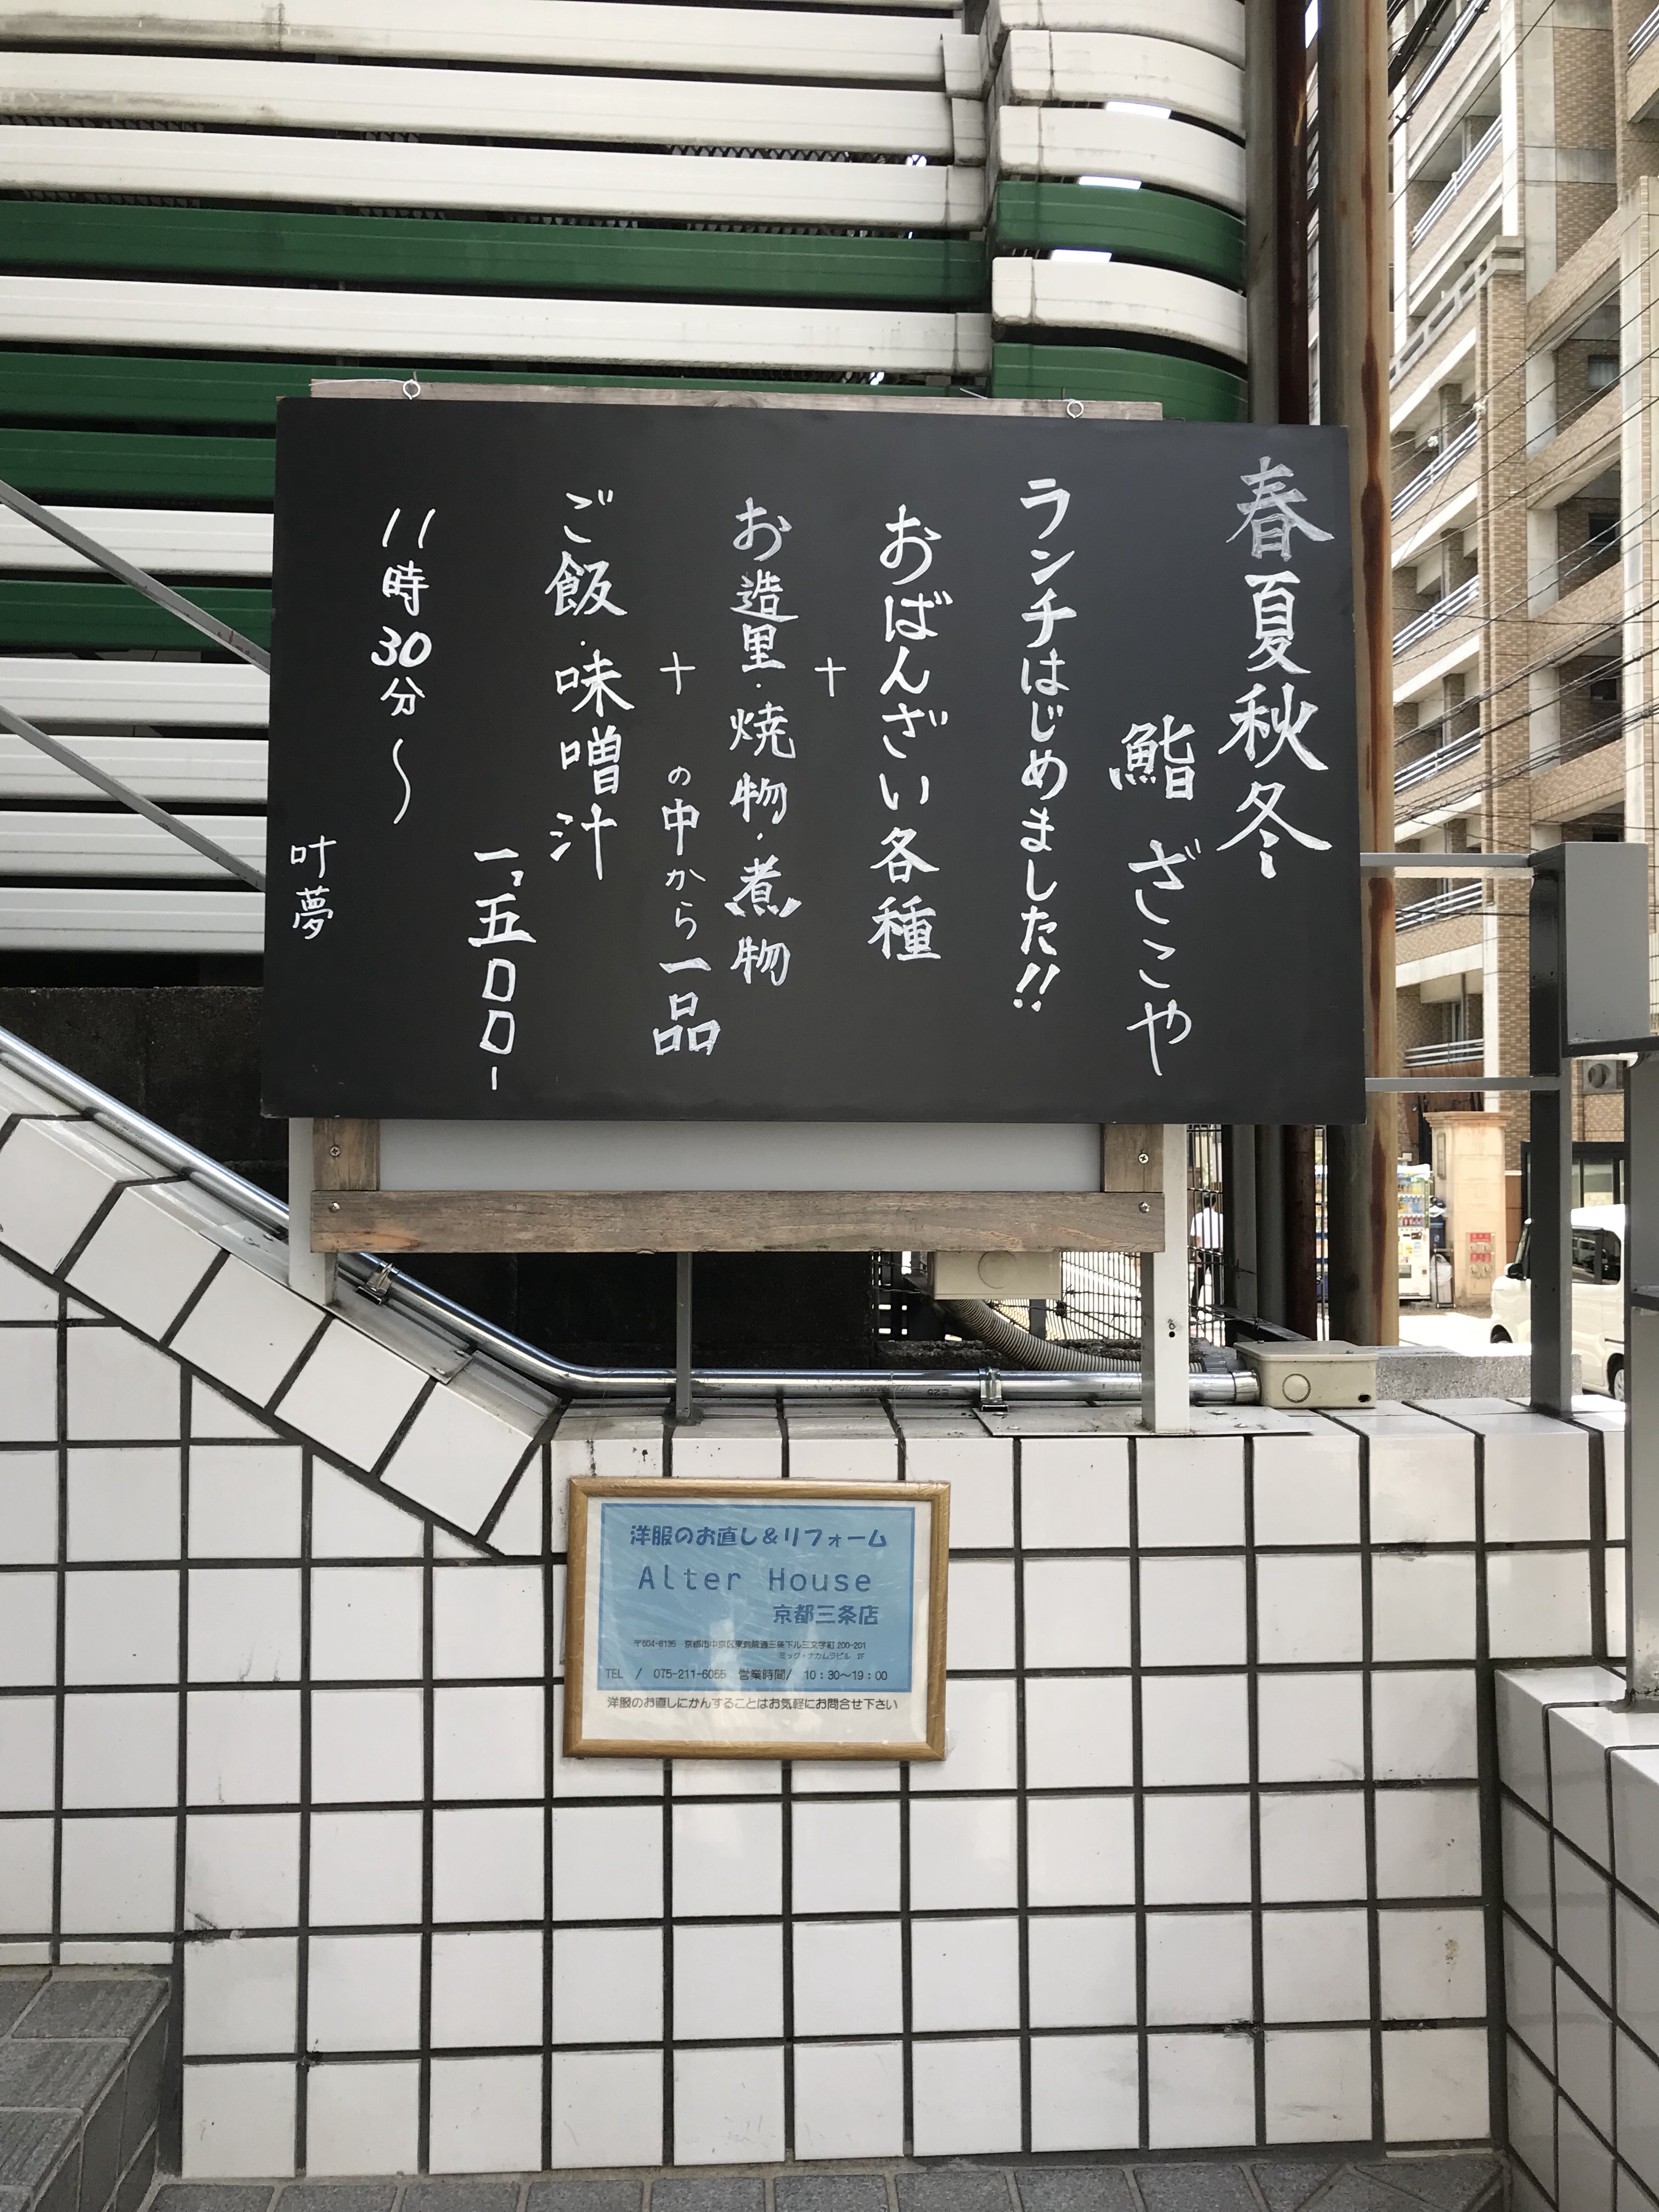 春夏秋冬
鮨 ざこや
ランチはじめました!!
おばんざい各種
+
お造里・焼物・煮物
の中から一品
+
ご飯・味噌汁
一、五〇〇-
11時30分〜
叶夢
洋服のお直し&リフォーム
Alter House
京都三条店
〒604-8135 京都市中京区東洞院通三条下ル三文字町 200-201
ミック・ナカムラビル 2F
TEL / 075-211-6055 営業時間/ 10:30〜19:00
洋服のお直しにかんすることはお気軽にお問合せ下さい
E25